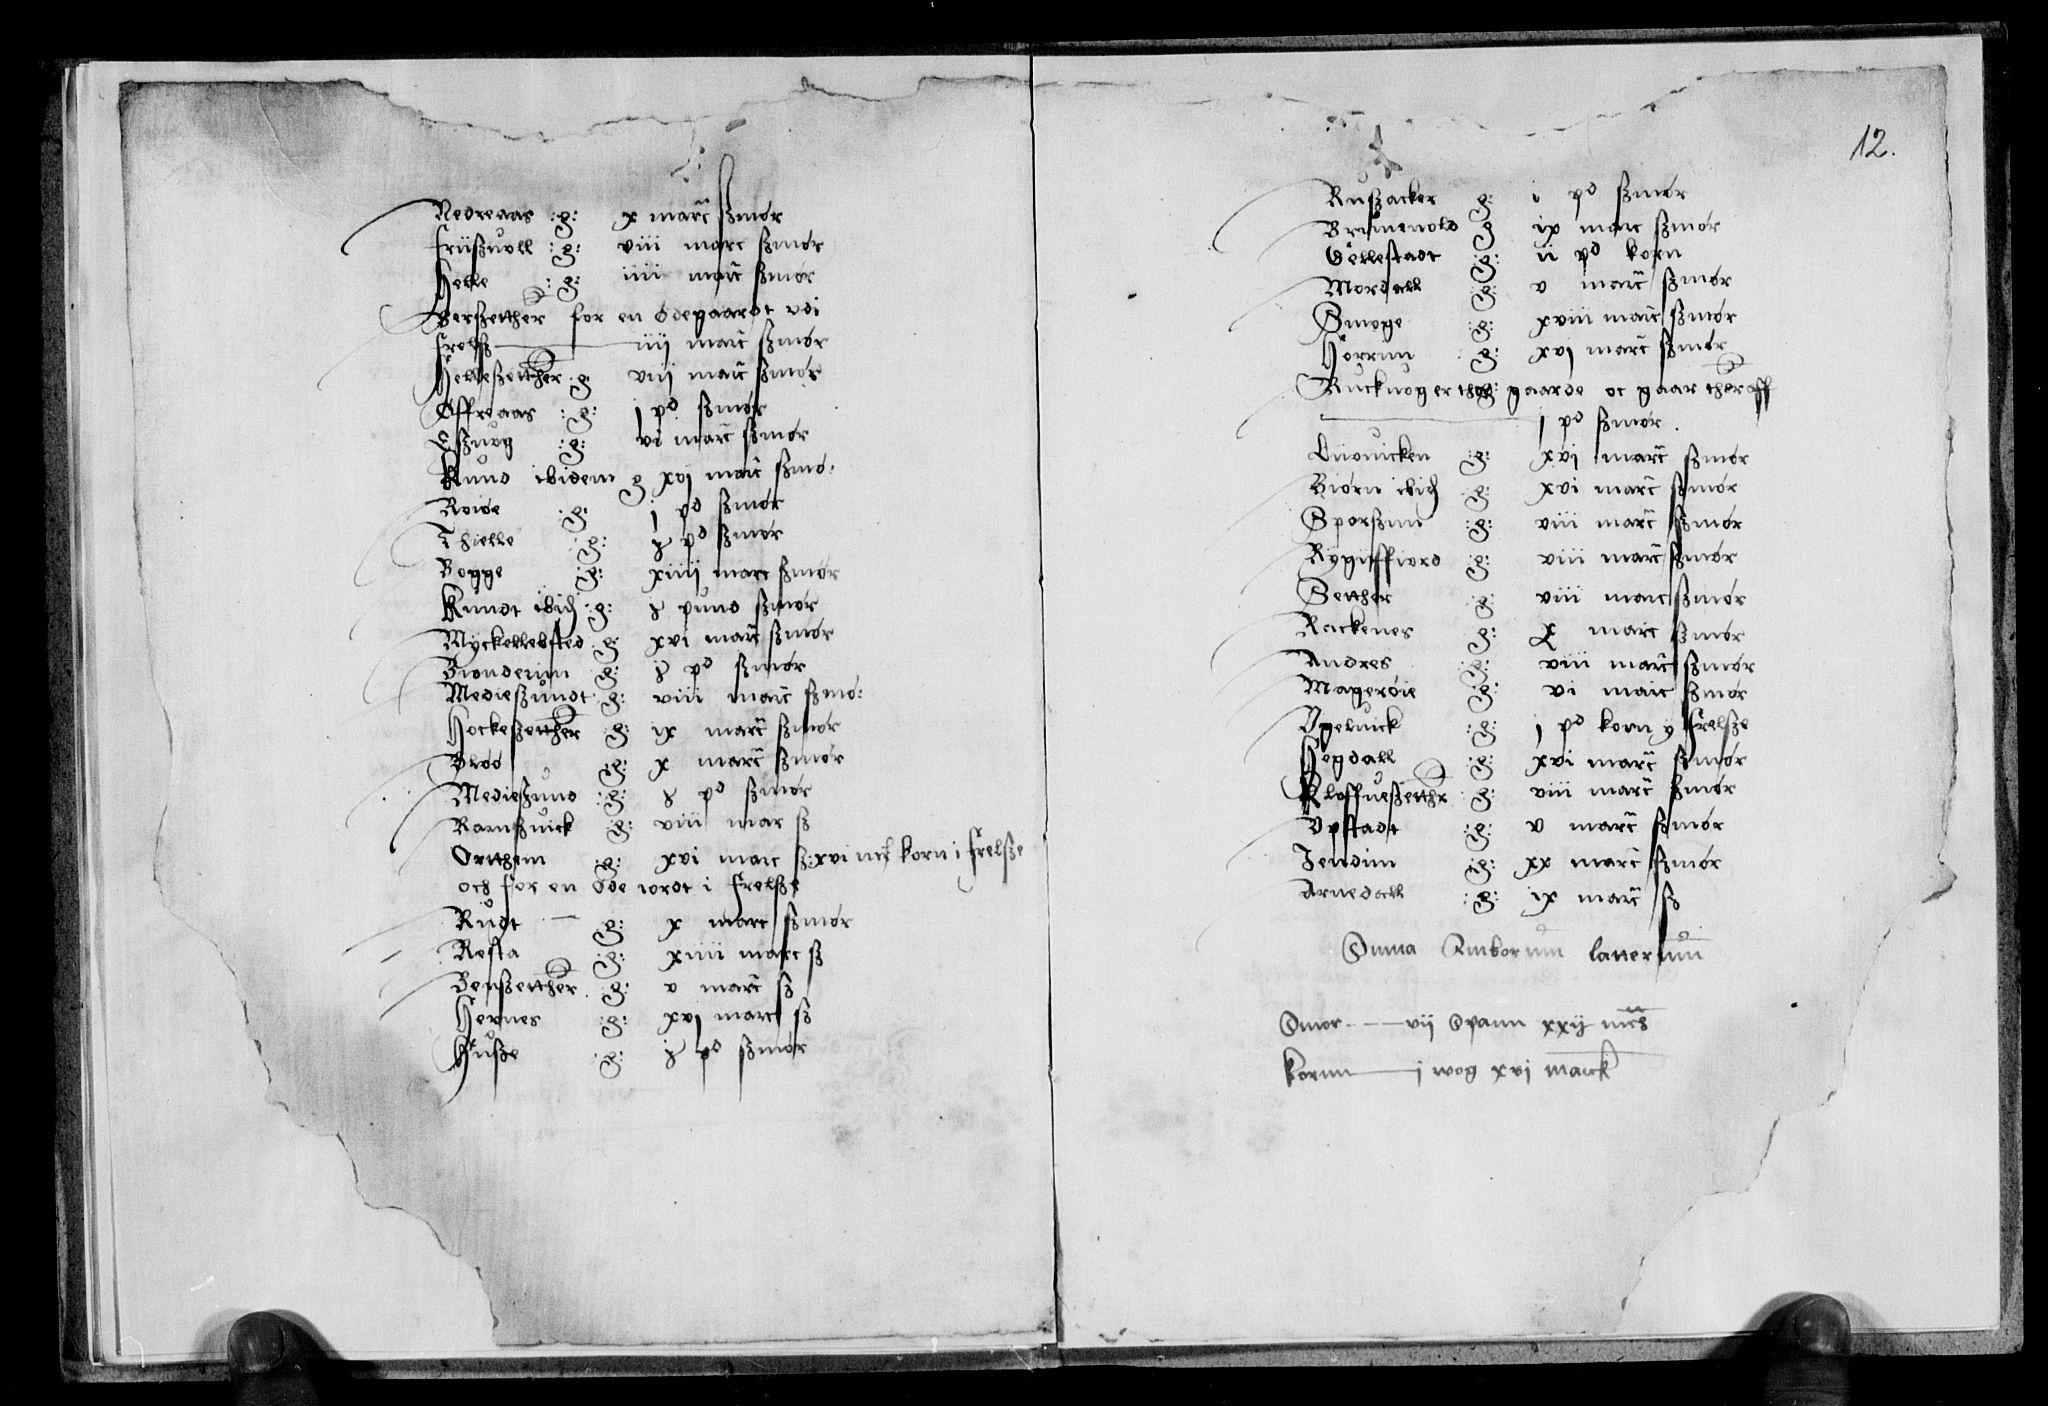 Nedreaas :g: x marc szmør
Friiszuoll :g: viii marc szmør
Helle :g: iiii marc szmør
Berszetther for en ødegaardt vdi
frelsz iiij marc szmør
Helleszetther :g: viii marc szmør
Øffreaas :g: j pd szmør
Eszuog :g: vi marc szmør
Knud ibidem g xvj marc szmø:
Roide :g: j pd szmør
Thielle :g: pd szmør
Bogge :g: xiiij marc szmør
Knudt ibid :g: pund szmør
Myckellebsted g: xvi marc szmør
Bionderim g: pd szmør
Medieszundt g: viii marc szmø:
Hockeszetther g: ix marc szmør
Bløø :g: x marc szmør
Medieszund :g: pd szmør
Ramszuick g: viii mar sz
Ortthem :g: xvi marc sz: xvi mck korn i frelsze
och for en øde iordt i frelsze
Rudt g: x marc szmør
Resta :g: xiiii marc sz
Benszetther :g: v marc sz
Hernes :g: xvj marc sz
Husze :g: pd szmør
12.
Ruszacker g: i pd szmør
Brimenold g ix marc szmør
Gellestadt :g: ii pd korn
Mordall :g: v marc szmør
Smoge :g: xviii marc szmør
Horrim :g: xvj marc szmør
gaarde oc gaar theraff
j pd szmør.
Liduicken :g: xvi marc szmør
Biørn ibid :g: xvi marc szmør
Sporszim :g: viii marc szmør
Rygiffiord g: viii marc szmør
Setther :g: viii marc szmør
Rackenes g: x marc szmør
Andres :g: viii marc szmør
Magerøie :g: vi marc szmør
Vgeluick :g: j pd korn y frelsze
Hogdall :g: xvi marc szmør
Kloffueszetthr :g: viii marc szmør
Vpstadt :g: v marc szmør
Jendim :g: xx marc szmør
Arnedall :g: ix marc sz
Suma Amborum latterum
Smor vij Spann xxij mcs
Kornn i wog xvi marck